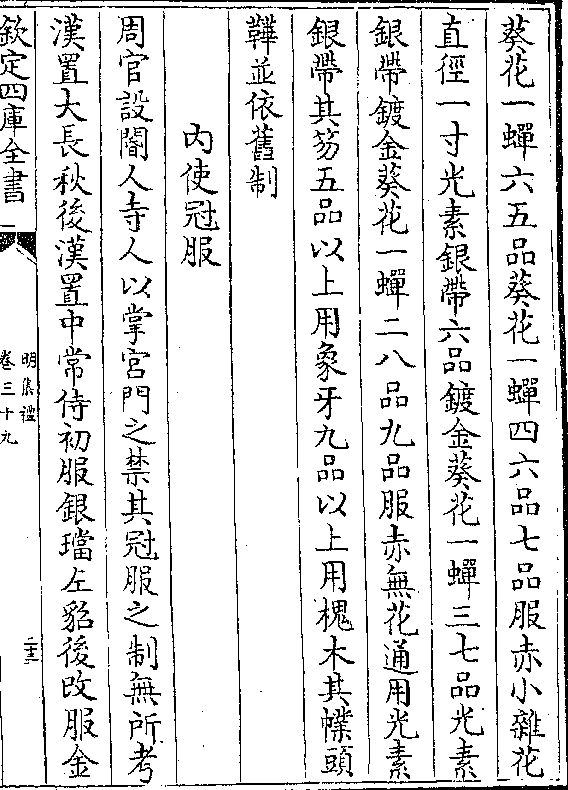 葵花一蟬六五品葵花一蟬四六品七品服赤小雜花
直徑一寸光素銀帶六品鍍金葵花一蟬三七品光素
銀帶鍍金葵花一蟬二八品九品服赤無花通用光素
銀帶其笏五品以上用象牙九品以上用槐木其幞頭
鞾並依舊制
内使冠服
周官設閽人寺人以掌宮門之禁其冠服之制無所考
漢置大長秋後漢置中常侍初服銀璫左貂後改服金
欽定四庫全書
明集禮
卷三十九
二十三